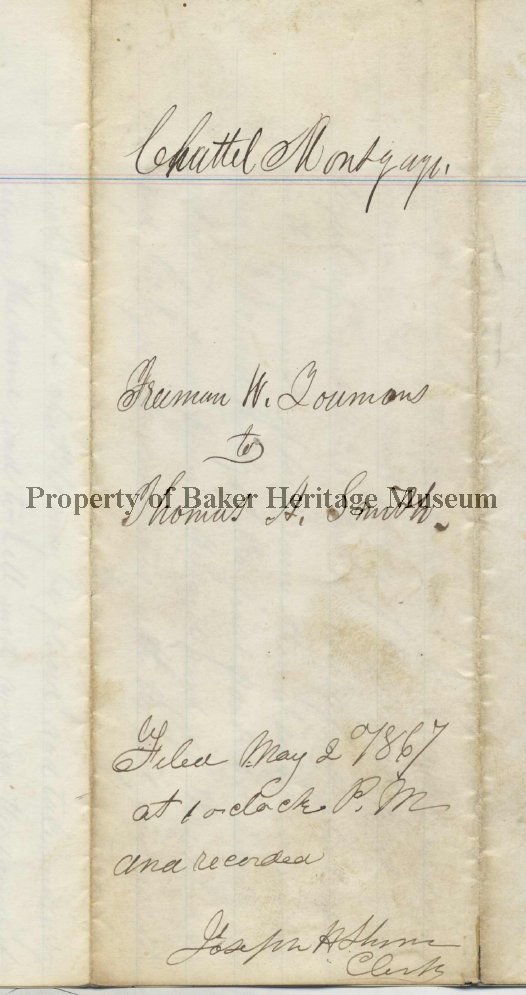 Chattel Mortgage.
Freeman W. Youmans
to
Property of Baker Heritage Museum
Thomas A. Smith.
Filed May 2 1867
at 1 oclock P. M
and recorded
Joseph H
Clerk